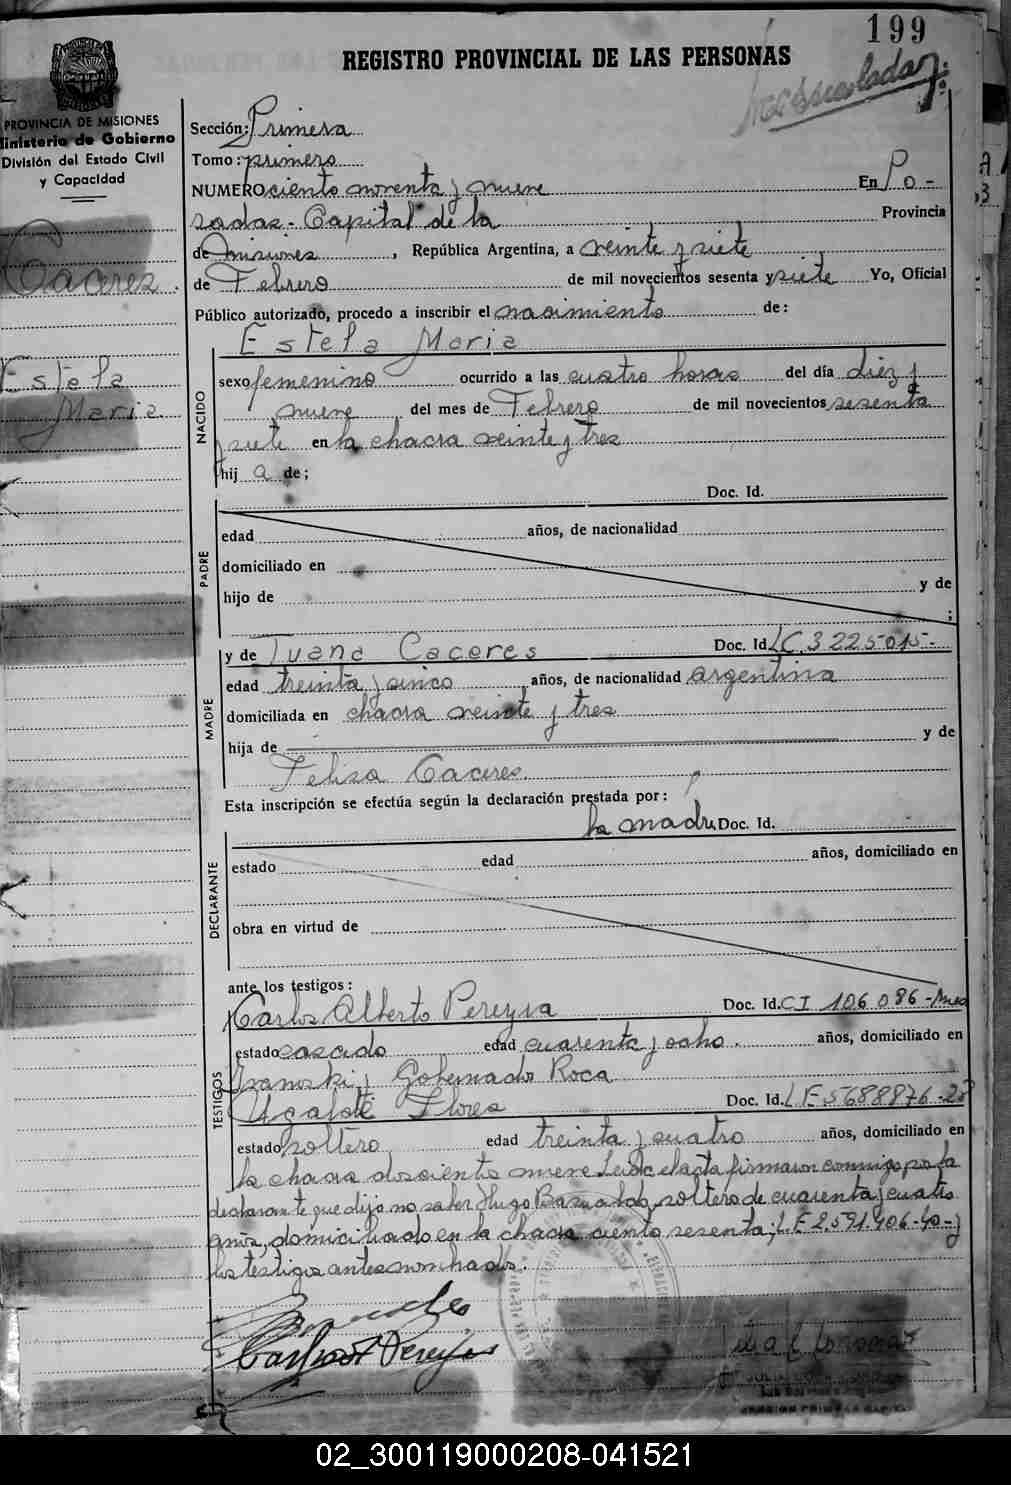 199
REGISTRO PROVINCIAL DE LAS PERSONAS
PROVINCIA DE MISIONES
Ministerio de Gobierno
División del Estado Civil
y Capacidad
Caceres
Estela
Maria
Sección: Primera
Tomo: primero
NUMERO ciento noventa y nueve En Po-
sadas - Capital de la Provincia
de Misiones, República Argentina, a veinte y siete
de Febrero de mil novecientos sesenta y siete Yo, Oficial
Público autorizado, procedo a inscribir el nacimiento de:
Estela Maria
NACIDO
sexo femenino ocurrido a las cuatro horas del día diez y
nueve del mes de Febrero de mil novecientos sesenta
y siete en la chacra veinte y tres
hij a de;
Doc. Id.
PADRE
edad años, de nacionalidad
domiciliado en
hijo de y de
;
MADRE
y de Juana Caceres Doc. Id. LC. 3225015-
edad treinta y cinco años, de nacionalidad argentina
domiciliada en chacra veinte y tres
hija de y de
Felisa Caceres
Esta inscripción se efectúa según la declaración prestada por:
la madre Doc. Id.
DECLARANTE
estado edad años, domiciliado en
obra en virtud de
ante los testigos:
TESTIGOS
Carlos Alberto Pereyra Doc. Id. CI 106.086-Mnes
estado casado edad cuarenta y ocho. años, domiciliado en
y Gobernador Roca
Flores Doc. Id. LE 5688876-23
estado soltero edad treinta y cuatro años, domiciliado en
la chacra doscientos nueve Leida el acta firmaron conmigo por la
declarante que dijo no saber Hugo Basualdo, soltero de cuarenta y cuatro
años, domiciliado en la chacra ciento sesenta; LE 2.591.406-40- y
los testigos antes nombrados.
02_300119000208-041521